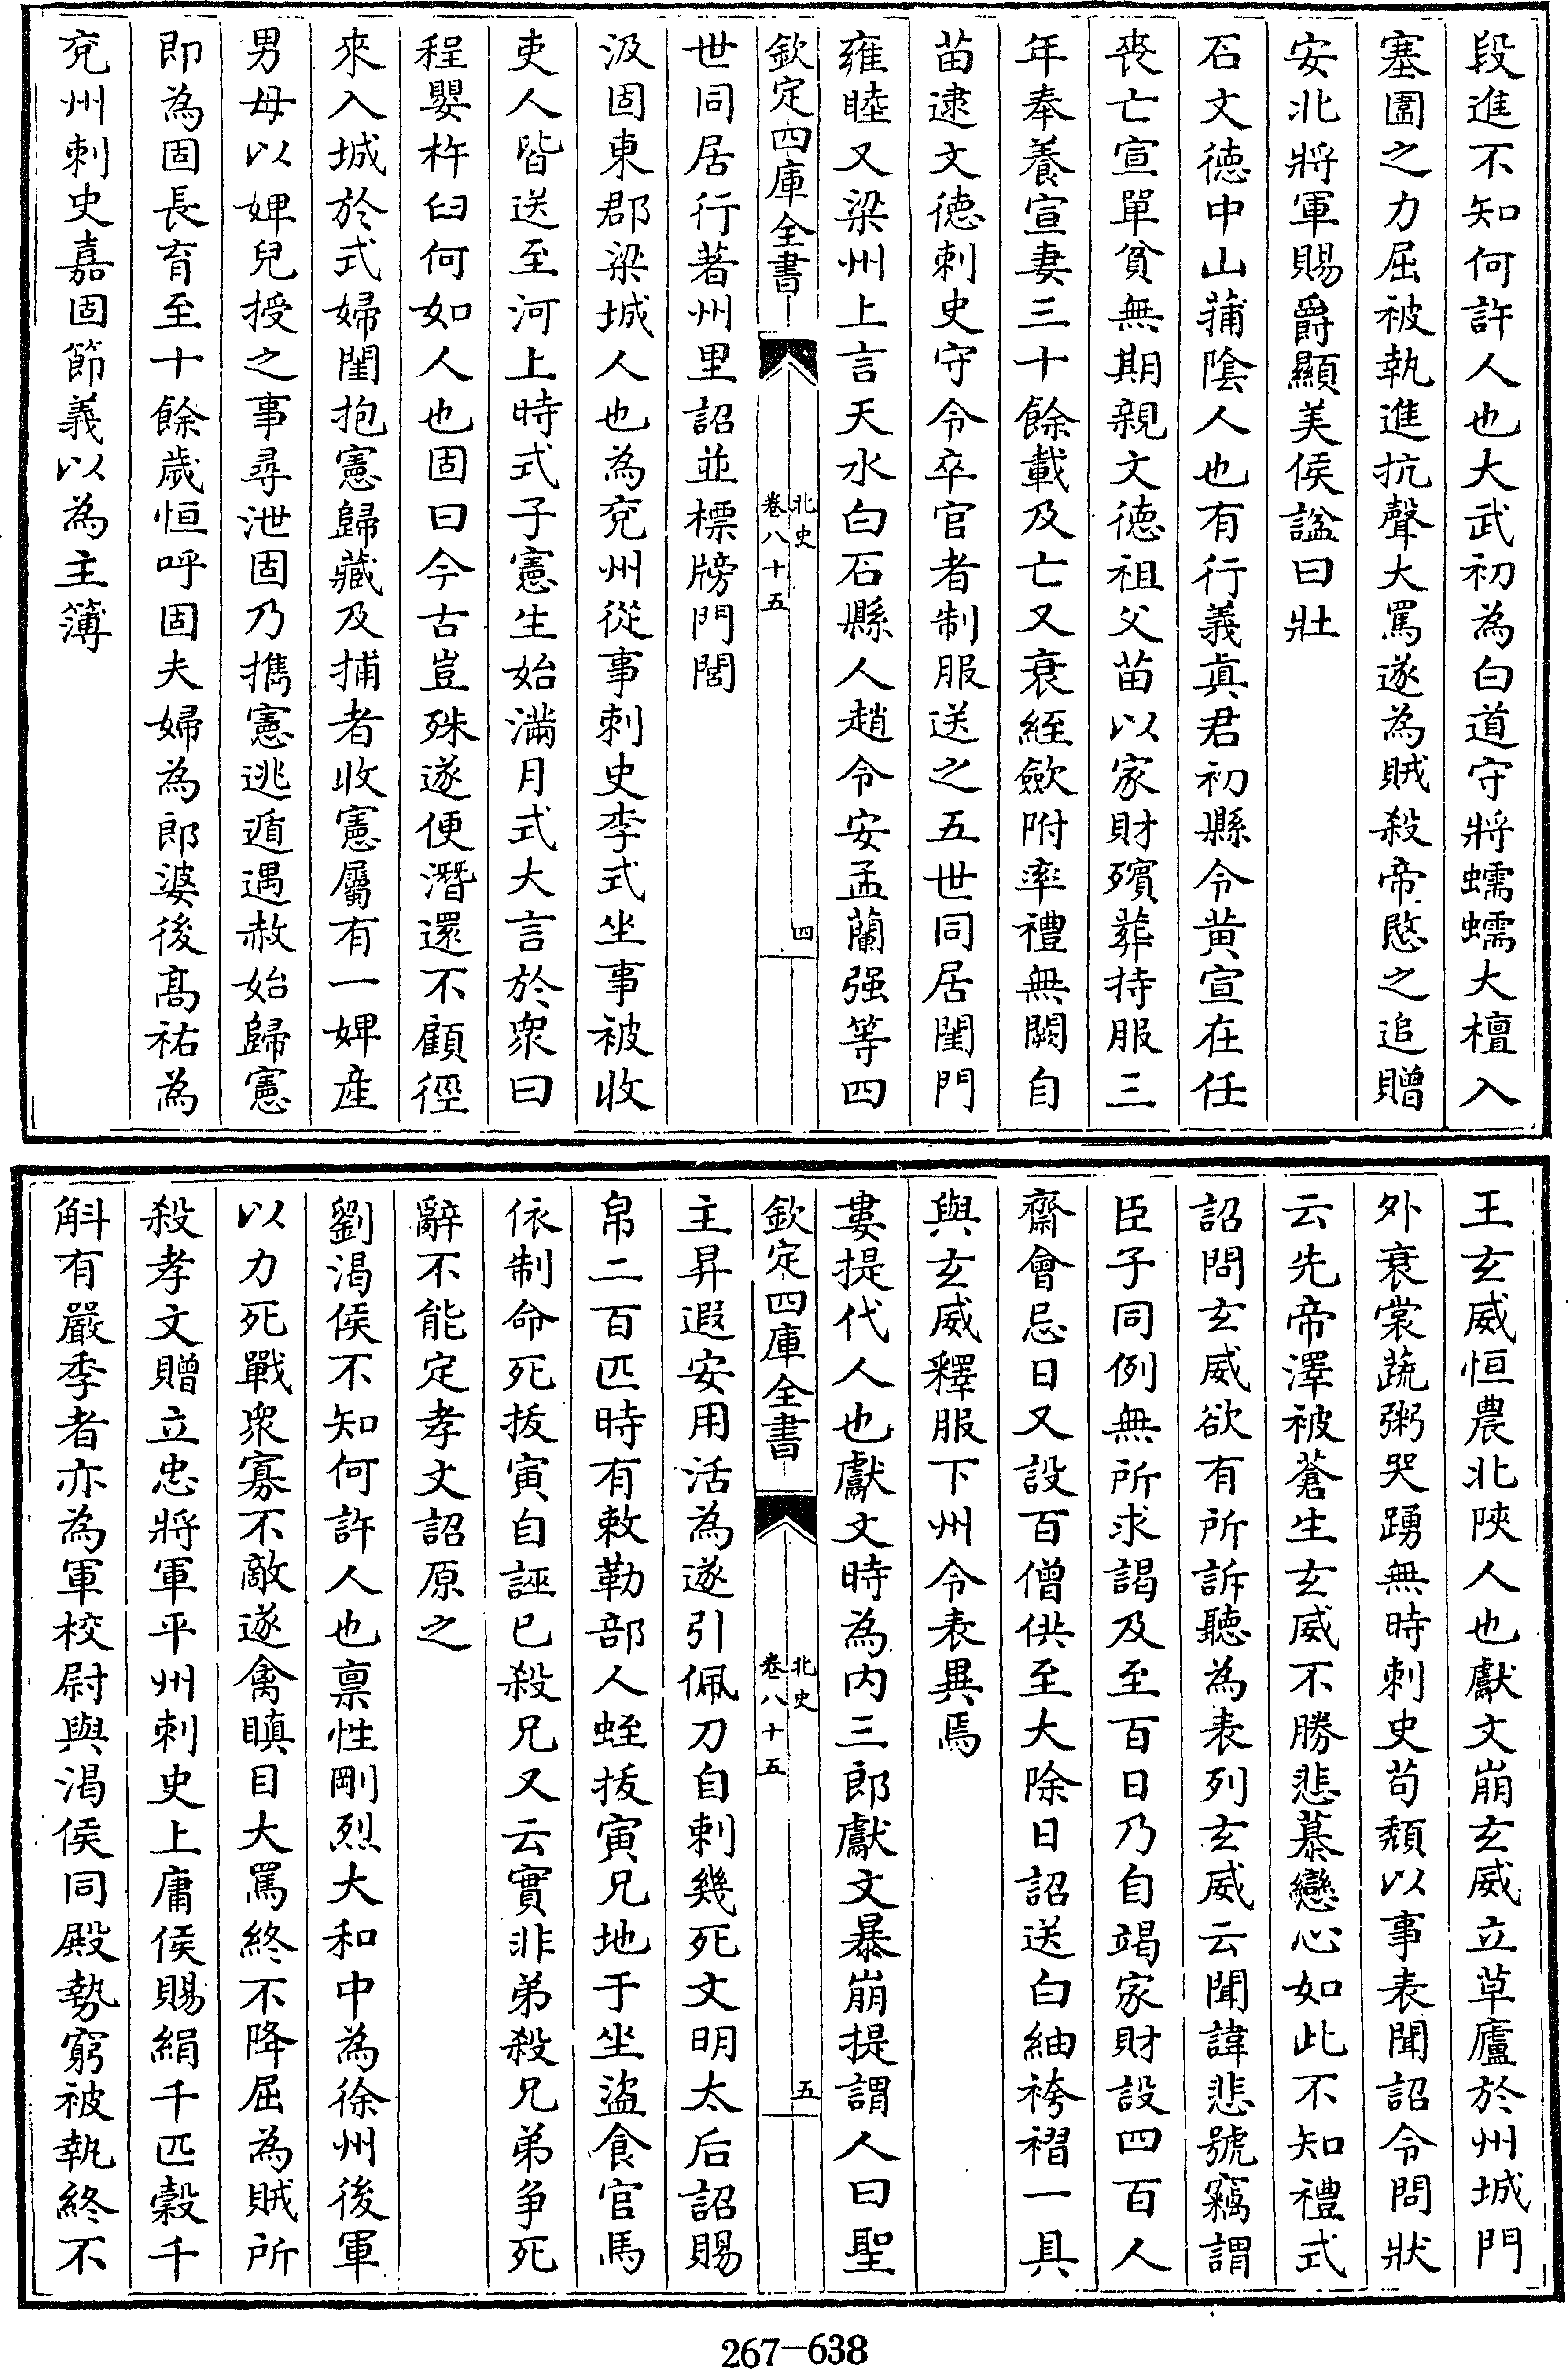 段進不知何許人也大武初為白道守將蠕蠕大檀入
塞圍之力屈被執進抗聲大罵遂為賊殺帝愍之追贈
安北將軍賜爵顯美侯諡曰壯
石文徳中山蒲隂人也有行義真君初縣令黃宣在任
喪亡宣單貧無期親文徳祖父苗以家財殯葬持服三
年奉養宣妻三十餘載及亡又衰絰歛附率禮無闕自
苗逮文徳刺史守令卒官者制服送之五世同居閨門
雍睦又梁州上言天水白石縣人趙令安孟蘭强等四
欽定四庫全書
北史
卷八十五
四
世同居行著州里詔並標牓門閭
汲固東郡梁城人也為兗州從事刺史李式坐事被收
吏人皆送至河上時式子憲生始滿月式大言於衆曰
程嬰杵臼何如人也固曰今古豈殊遂便潛還不顧徑
來入城於式婦閨抱憲歸藏及捕者收憲屬有一婢産
男母以婢兒授之事尋泄固乃攜憲逃遁遇赦始歸憲
即為固長育至十餘歲恒呼固夫婦為郎婆後髙祐為
兗州刺史嘉固節義以為主簿
王玄威恒農北陜人也獻文崩玄威立草廬於州城門
外衰裳蔬粥哭踴無時刺史苟頽以事表聞詔令問狀
云先帝澤被蒼生玄威不勝悲慕戀心如此不知禮式
詔問玄威欲有所訴聽為表列玄威云聞諱悲號竊謂
臣子同例無所求謁及至百日乃自竭家財設四百人
齋會忌日又設百僧供至大除日詔送白紬袴褶一具
與玄威釋服下州令表異焉
婁提代人也獻文時為内三郎獻文暴崩提謂人曰聖
欽定四庫全書
北史
卷八十五
五
主昇遐安用活為遂引佩刀自刺幾死文明太后詔賜
帛二百匹時有敕勒部人蛭拔寅兄地于坐盜食官馬
依制命死拔寅自誣已殺兄又云實非弟殺兄弟争死
辭不能定孝文詔原之
劉渇侯不知何許人也禀性剛烈大和中為徐州後軍
以力死戰衆寡不敵遂禽瞋目大罵終不降屈為賊所
殺孝文贈立忠將軍平州刺史上庸侯賜絹千匹穀千
斛有嚴季者亦為軍校尉與渇侯同殿勢窮被執終不
267-638